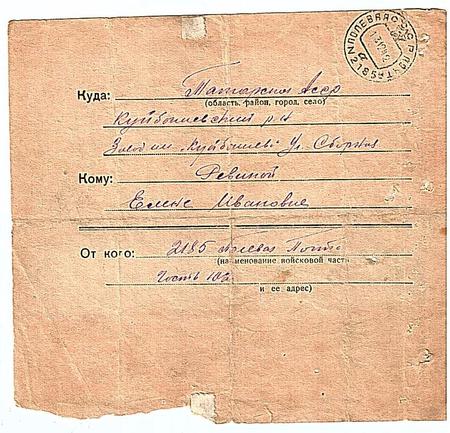 ПОЛЕВАЯ ПОЧТА № 2185
СССР
Куда: Татарская Асср
(область, район, город, село)
Куйбышевский р-н
Завод им. Куйбышева Ул.
Кому: Ревиной
Елене Ивановне
От кого: 2185 полевая Почта
(наименование войсковой части
Часть
и ее адрес)